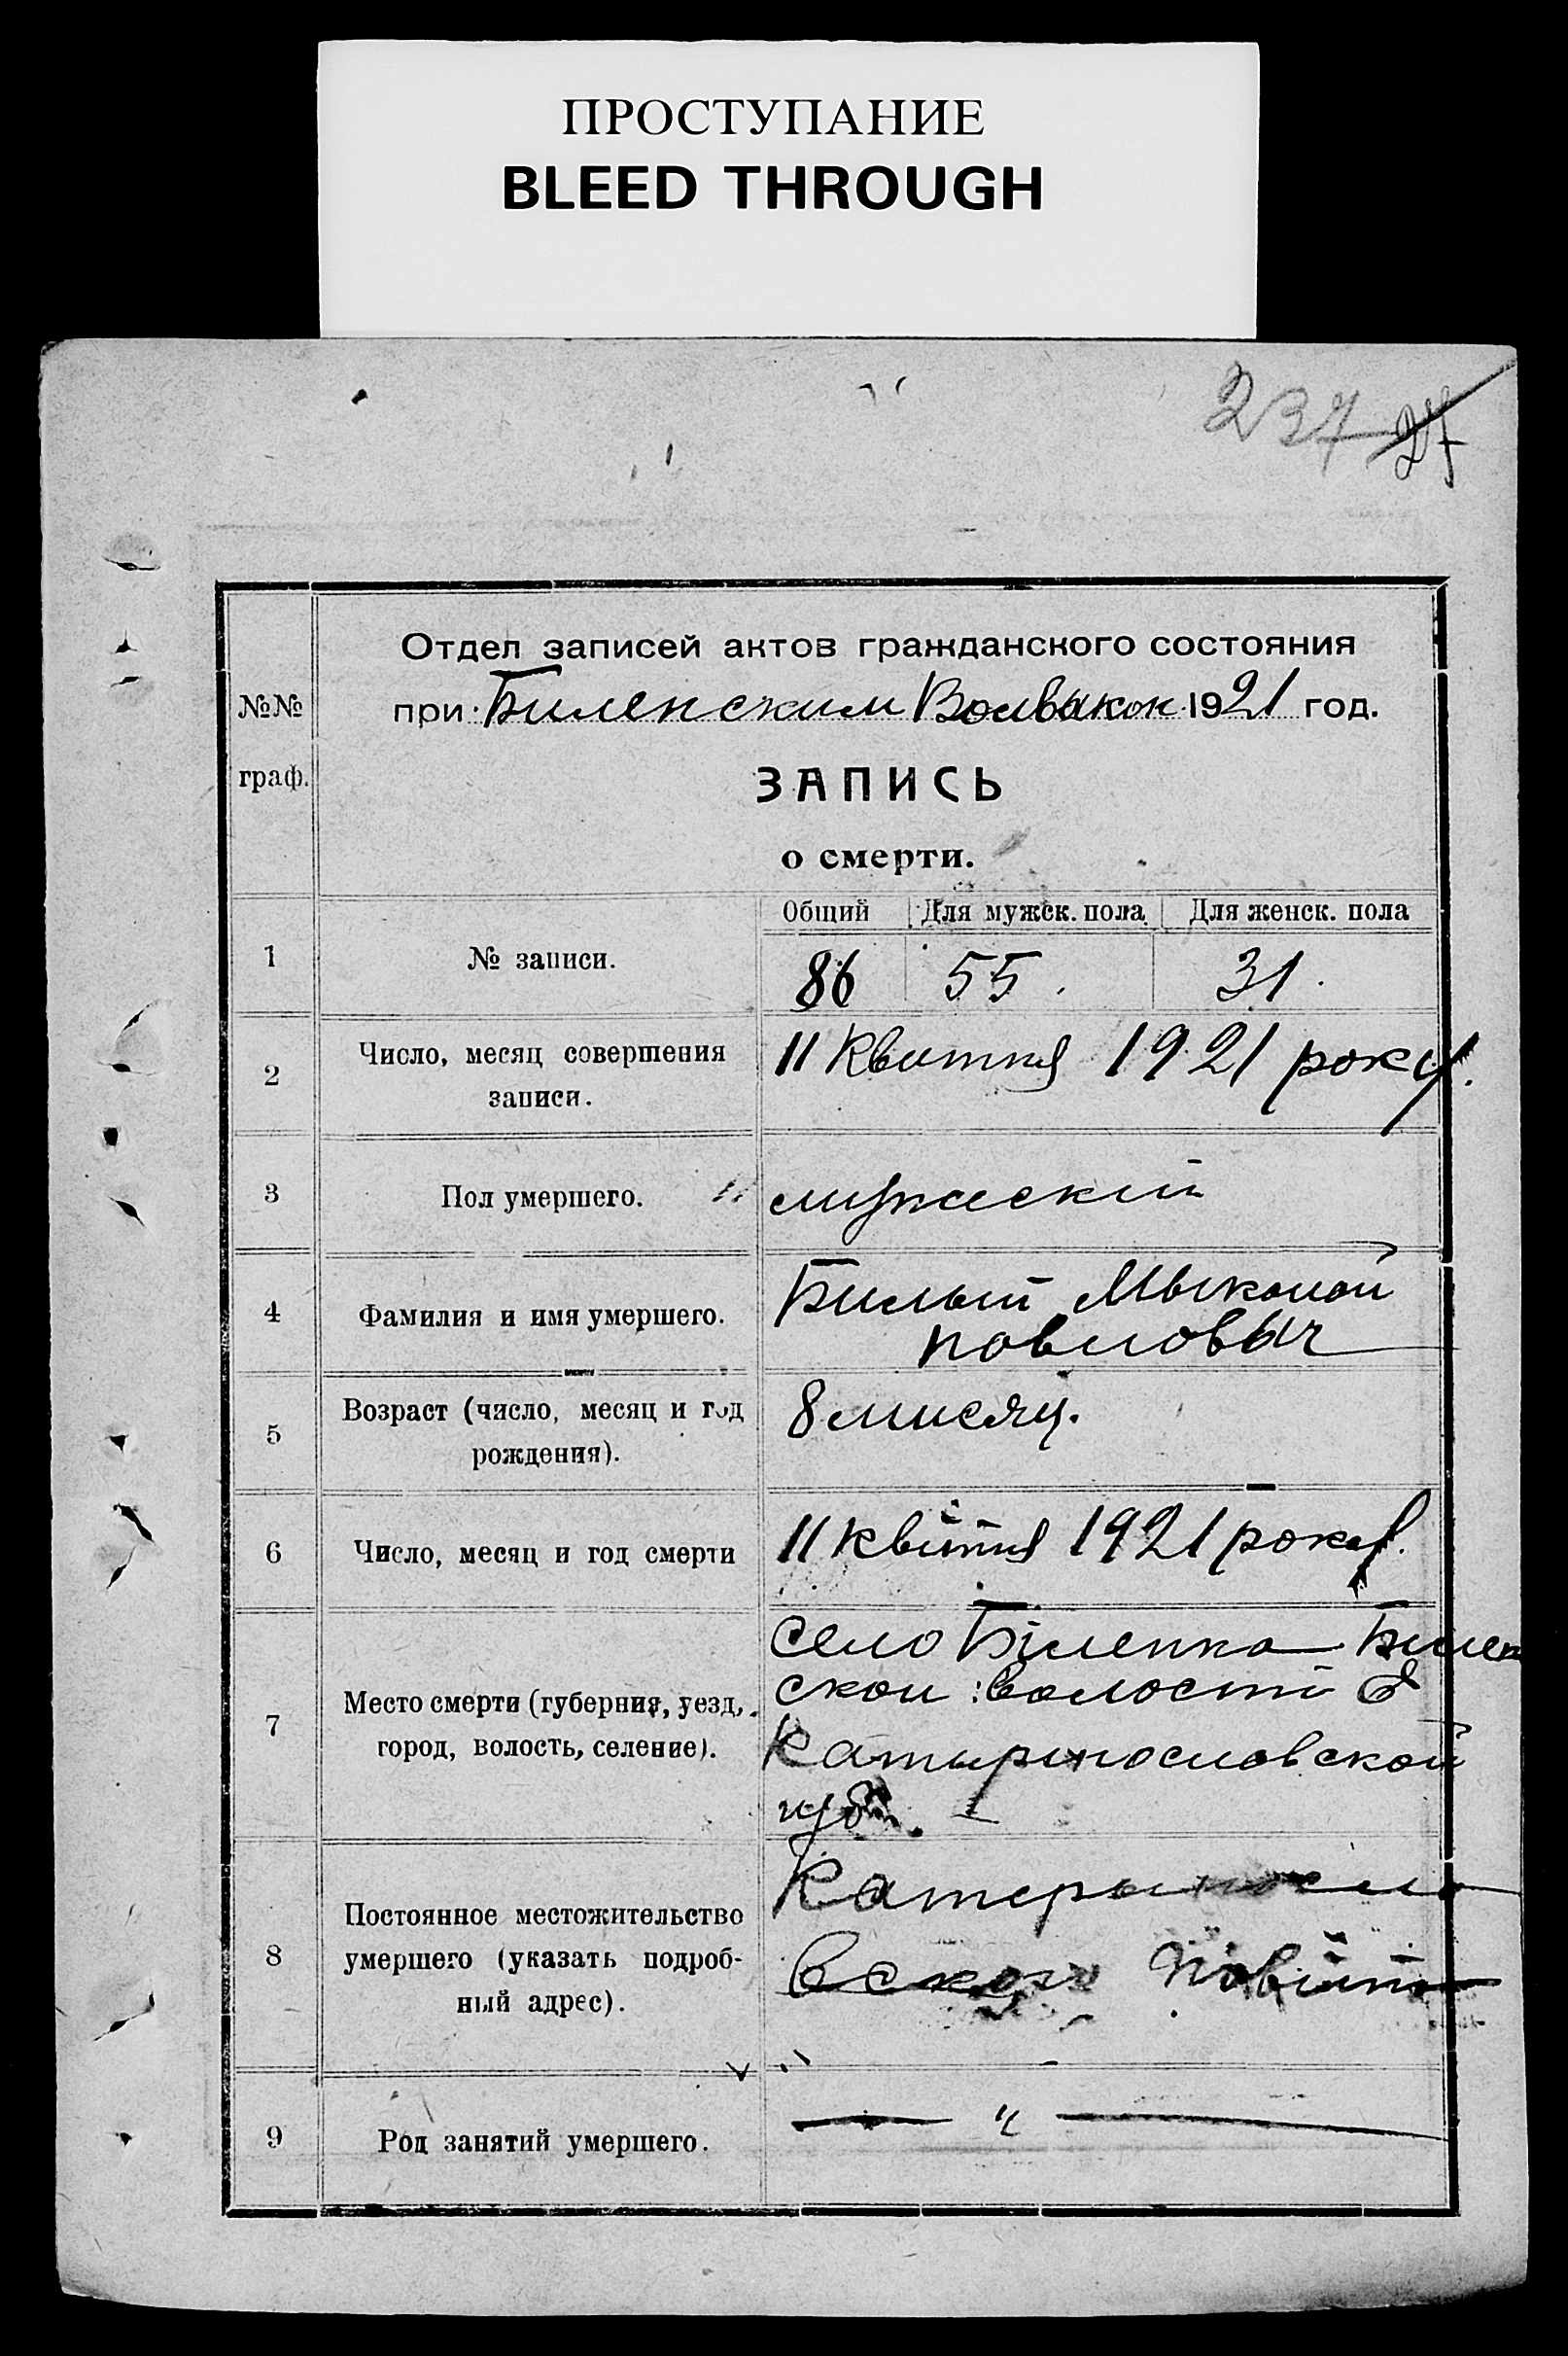 ПРОСТУПАНИЕ
BLEED THROUGH
237 27
№№ граф.
Отдел записей актов гражданского состояния
при Биленским Волвыком 1921 год.
ЗАПИСЬ
о смерти.
Общий Для мужск. пола Для женск. пола
1 № записи. 86 55. 31.
2 Число, месяц совершения записи. 11 Квитня 1921 року.
3 Пол умершего. мужеский
4 Фамилия и имя умершего. Билый Мыколай
Повловыч
5 Возраст (число, месяц и год рождения). 8 мисяц.
6 Число, месяц и год смерти 11 квітня 1921 року.
7 Место смерти (губерния, уезд, город, волость, селение). село Біленка Билен
ской волости
Катыринославской
губ.
8 Постоянное местожительство умершего (указать подроб-ный адрес). Катериносла
вского Повіта
9 Род занятий умершего. — " —